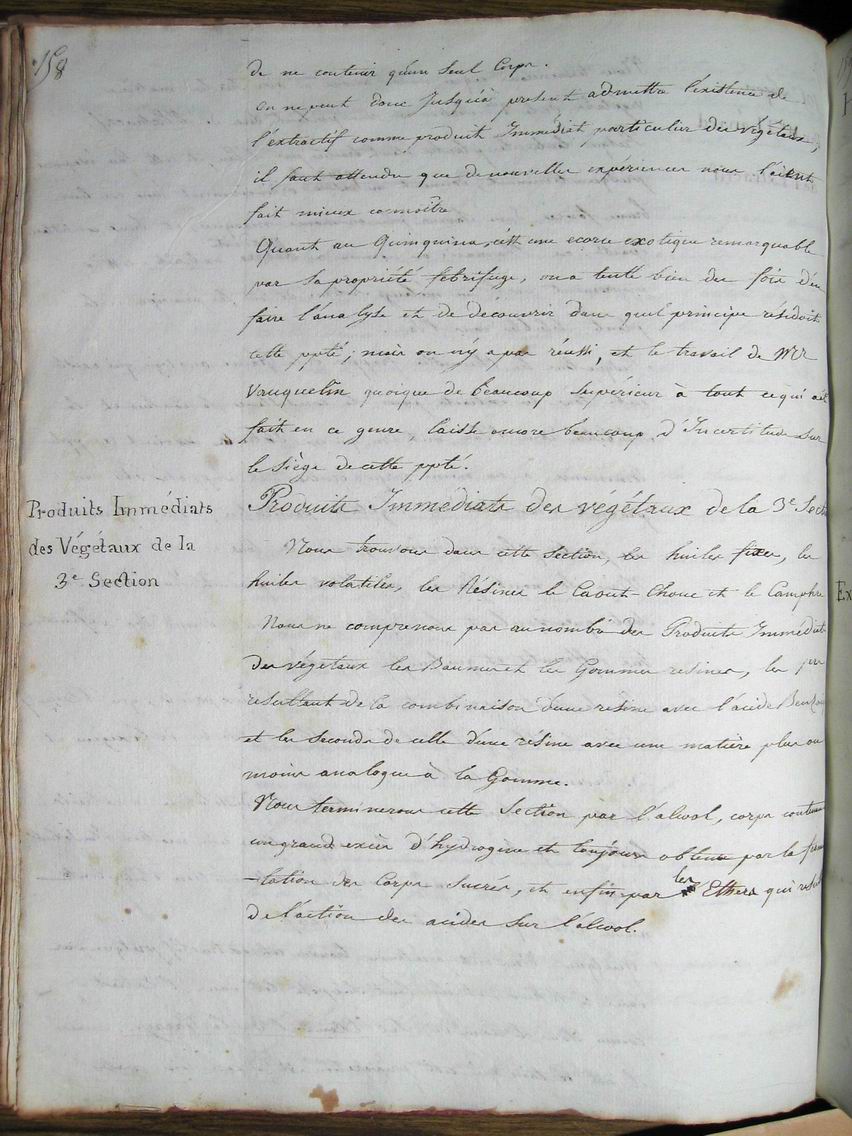 158
de ne contenir qu'un seul Corps.
on ne peut donc Jusqu'à présent admettre l'existence de
l'extractif comme produit Immédiat particulier des végétaux,
il faut attendre que de nouvelles expériences nous l'aient
fait mieux connoître
Quant au Quinquina, c'est une ecorce exotique remarquable
par sa propriété fébrifuge, on a tenté bien des fois d'en
faire l'analyse et de découvrir dans quel principe résidoit
cette ppté; mais on n'y a pas réussi, et le travail de Mr
Vauquelin quoique de beaucoup supérieur à tout ce qui a été
fait en ce genre, laisse encore beaucoup d'Incertitude sur
le siège de cette ppté.
Produits Immédiats
des Végétaux de la
3e Section
Produits Immédiats des végétaux de la 3e Sect
Nous trouvons dans cette section, les huiles fixes, les
huiles volatiles, les Résines le Caout-Chouc et le Camphre
Nous ne comprenons pas au nombre des Produits Immédiats
des végétaux les Baumes et les Gommes resines, les pr
résultant de la combinaison d'une resine avec l'acide Benzoi
et les seconds de celle d'une résine avec une matière plus ou
moins analogue à la Gomme.
Nous terminerons cette Section par l'alcool, corps contenant
un grand excès d'hydrogène et toujours obtenu par la ferm
-tation des Corps Sucrés, et enfin par les Ethers qui result
de l'action des acides sur l'alcool.
Ex